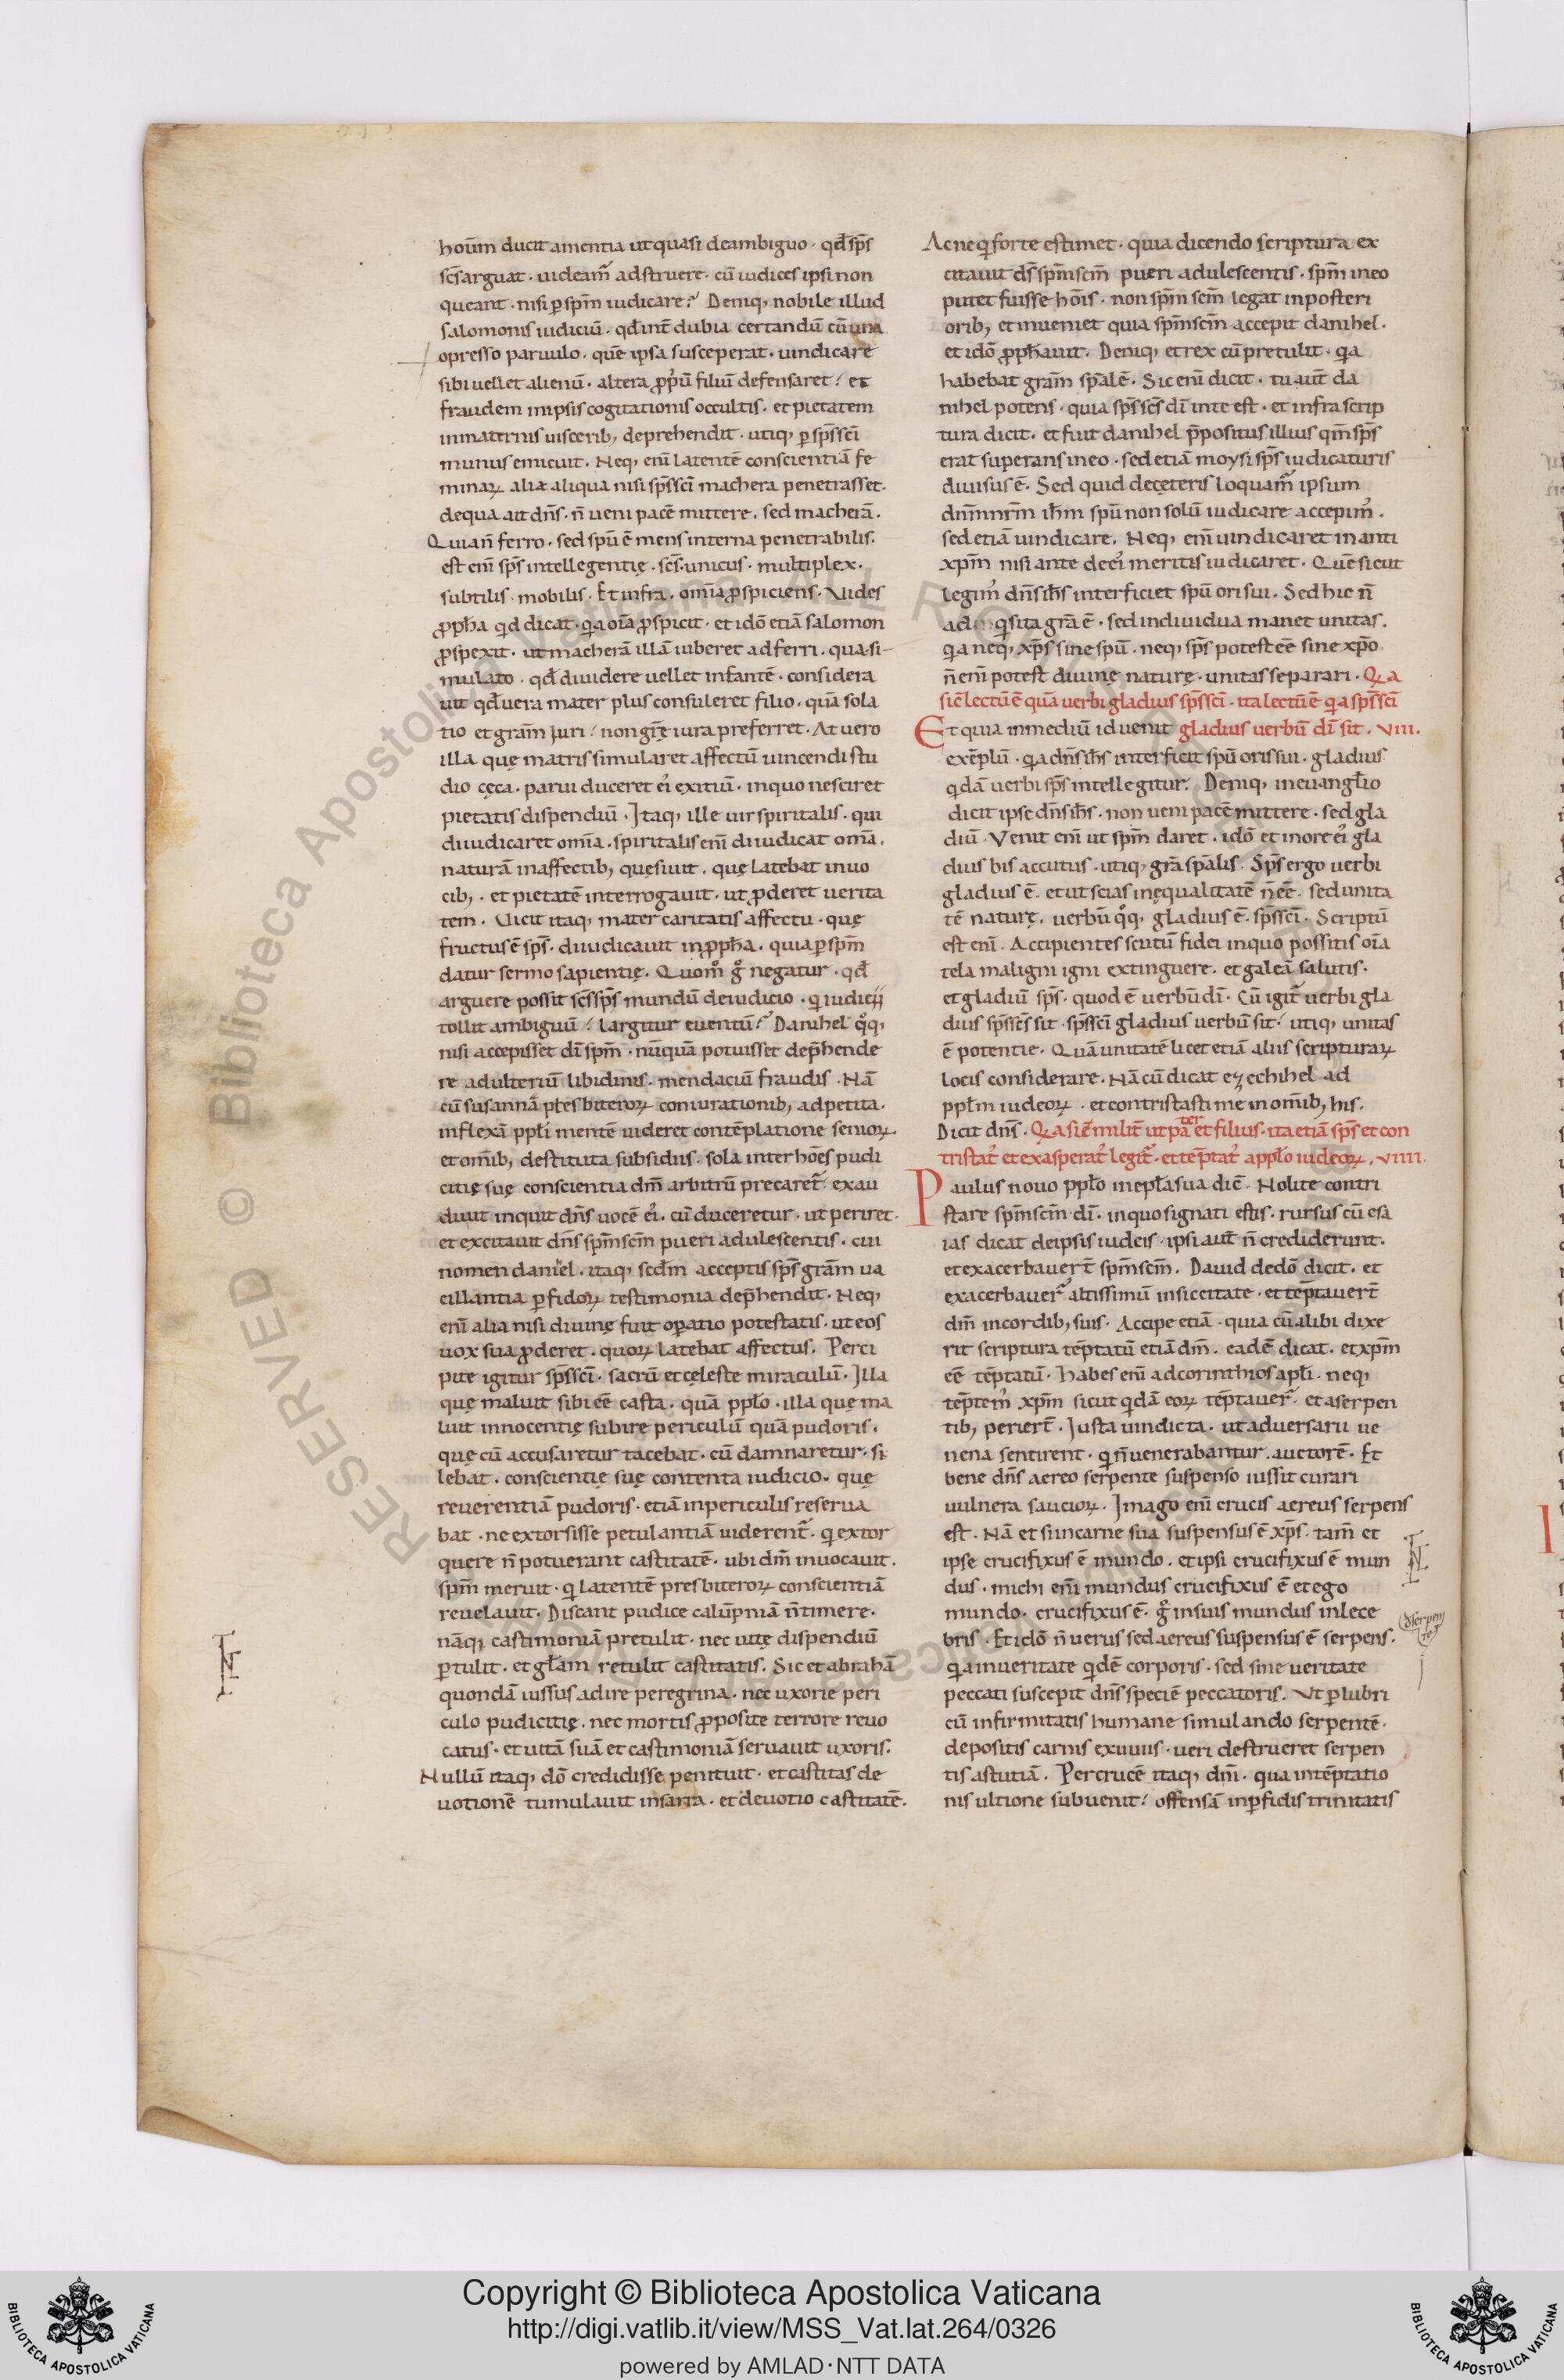 hoūm ducit amentia ut quasi de ambiguo · qđ sp̄s
sc̄s arguat · uideam̄ adstruere · cū iudices ipsi non
queant · nisi ꝑ spm̄ iudicare? Deniq; nobile illud
salomonis iudiciū · qđ int̄ dubia certandū cū una
opresso paruulo · quē ipsa susceperat · uindicare
sibi uellet alienū · altera ꝓpriū filiū defensaret / et
fraudem in ipsis cogitationis occultis · et pietatem
in maternis uiscerib; deprehendit · utiq; ꝑ sp̄s sc̄i
munus enicuit · Neq; eni latentē conscientiā fe
minaꝝ aliæ aliqua nisi sp̄s sc̄i machera penetrasset ·
de qua ait dn̄s · n̄ ueni pacē mittere · sed macherā ·
Quia n̄ ferro · sed spū ē mens interna penetrabilis ·
est eni sp̄s intellegentię · sc̄s · unicus · multiplex ·
subtilis · mobilis · Et infra · omīa ꝓspiciens · Vides
ꝓph̄a qd dicat · q̄a oīa ꝓspicit · et idō etiā salomon
ꝓspexit · ut macherā illā iuberet adferri · qua si-
mulato · qđ diuidere uellet infantē · considera
uit qđ uera mater plus consuleret filio · quā sola
tio et grām iuri / non grę iura preferret · At uero
illa quę matris simularet affectū uincendi stu
dio cęca · parui duceret ei' exitiū · in quo nesciret
pietatis dispendiū · Itaq; ille uir spiritalis · qui
diiudicaret omīa · spiritalis eni diiudicat omīa ·
naturā in affectib; quęsiuit · quę latebat in uo
cib; · et pietatē interrogauit · ut ꝓderet uerita
tem · Vicit itaq; mater caritatis affectu · quę
fructus ē sp̄s · diiudicauit in ꝓph̄a · quia ꝑ spm̄
datur sermo sapientię · Quom̊ g̊ negatur · qđ
arguere possit sc̄s sp̄s mundū de iudicio · qi iudicii
tollit ambiguū / largitur euentū? Danihel q̊q;
nisi accepisset dī spm̄ · nūquā potuisset dep̄hende
re adulteriū libidinis · mendaciū fraudis · Nā
cū susannā pt̄es biteroꝝ coniurationib; adpetita ·
inflexā ppłi mentē uideret contēplatione senioꝝ ·
et omīb; destituta subsidiis · sola inter hoēs pudi
citię suę conscientia dm̄ arbitrū precaret̄ · exau
diuit inquit dn̄s uocē ei' · cū duceretur · ut periret ·
et excitauit dn̄s spm̄ scm̄ pueri adulescentis · cui
nomen daniel · itaq; scdm̄ acceptis sp̄s grām ua
cillantia ꝑfidoꝝ testimonia dep̄hendit · Neq;
enī alia nisi diuinę fuit oꝑatio potestatis · ut eos
uox sua ꝓderet · quoꝝ latebat affectus · Perci
pite igitur sp̄s sc̄i · sacrū et cęleste miraculū · Illa
quę maluit sibi eē casta · quā ppło · illa quę ma
luit innocentię subire periculū quā pudoris ·
quę cū accusaretur tacebat · cū damnaretur · si
lebat · conscientię suę contenta iudicio · quę
reuerentiā pudoris · etiā in periculis reserua
bat · ne extorsisse petulantiā uiderent̄ · qi extor
quere n̄ potuerant castitatē · ubi dm̄ inuocauit ·
spm̄ meruit · qi latentē presbiteroꝝ conscientiā
reuelauit · Discant pudice calūpniā n̄ timere ·
nāq; castimoniā pretulit · nec uitę dispendiū
ꝑtulit · et głam retulit castitatis · Sic et abrahā
quondā iussus adire peregrina · nec uxorie peri
culo pudicitię · nec mortis ꝓposite terrore reuo
catus · et uitā suā et castimoniā seruauit uxoris ·
Nullū itaq; dō credidisse penituit · et castitas de
uotionē tumulauit in sarra · et deuotio castitatē ·
Ac ne qi forte estimet · quia dicendo scriptura ex
citauit ds̄ spm̄ scm̄ pueri adulescentis · spm̄ in eo
putet fuisse hōis · non spm̄ scm̄ legat in posteri
orib; et inueniet quia spm̄ scm̄ accepit danihel ·
et idō ꝓph̄auit · Deniq; et rex eū pretulit · q̄a
habebat grām sp̄alē · Sic enī dicit · tu aut̄ da
nihel potens · quia sp̄s sc̄s dī in te est · et infra scrip
tura dicit · et fuit danihel p̄positus illius qm̄ sp̄s
erat superans in eo · sed etiā moysi sp̄s iudicaturis
diuisus ē · Sed quid de cęteris loquam̄ ipsum
dnm̄ nrm̄ ihm̄ spū non solū iudicare accepim' ·
sed etiā uindicare · Neq; enī uindicaret in anti
xpm̄ nisi ante de ei' meritis iudicaret · Quē sicut
legim' dn̄s ihs̄ interficiet spū ori sui · Sed hic n̄
ad qisita grā ē · sed indiuidua manet unitas ·
q̄a neq; xp̄s sine spū · neq; sp̄s potest eē sine xpō ·
n̄ enī potest diuinę naturę · unitas separari · Q̄a
sic̄ lectū ē quā uerbi gladius sp̄s sc̄i · ita lectū ē q̄a sp̄s sc̄i
Et quia in mediū id uenit gladius uerbū dī sit · VIII ·
exēplū · q̄a dn̄s ihs̄ interficit spū oris sui · gladius
qdā uerbi sp̄s intellegitur · Deniq; in euangłio
dicit ipse dn̄s ihs̄ · non ueni pacē mittere · sed gla
diū · Venit enī ut spm̄ daret · idō et in ore ei' gla
dius bis accutus · utiq; grā sp̄alis · Sp̄s ergo uerbi
gladius ē · et ut scias inęqualitatē n̄ eē · sed unita
tē naturę · uerbū q̊q; gladius ē · sp̄s sc̄i · Scriptū
est enī · Accipientes scutū fidei in quo possitis oīa
tela maligni igni extinguere · et galeā salutis ·
et gladiū sp̄s · quod ē uerbū dī · Cū igit̄ uerbi gla
dius sp̄s sc̄s sit · sp̄s sc̄i gladius uerbū sit / utiq; unitas
ē potentie · Quā unitatē licet etiā aliis scripturaꝝ
locis considerare · Nā cū dicat ezechihel ad
ppłm iudeoꝝ · et contristasti me in omīb; his ·
Dicit dn̄s · Q̄a sic̄ milit̄ ut pa ter et filius · ita etiā sp̄s et con
tristat' et exasperat' legit̄ · et tēptat' a ppło iudeoꝝ · VIIII ·
Paulus nouo ppło in epła sua dic̄ · Nolite contri
stare spm̄ scm̄ dī · in quo signati estis · rursus cū esa
ias dicat de ipsis iudeis · ipsi aut̄ n̄ crediderunt ·
et exacerbauert̄ spm̄ scm̄ · Dauid de dō dicit · et
exacerbauer̄ altissimū in siccitate · et tēptauert̄
dm̄ in cordib; suis · Accipe etiā · quia cū alibi dixe
rit scriptura tēptatū etiā dm̄ · eadē dicat · et xpm̄
eē tēptatū · habes enī ad corinthios apłi · neq;
tēptem' xpm̄ sicut qdā eoꝝ tēptauer̄ · et a serpen
tib; periert̄ · Iusta uindicta · ut aduersarii ue
nena sentirent · qi n̄ uenerabantur auctorē · Et
bene dn̄s aereo serpente suspenso iussit curari
uulnera saucioꝝ · Imago enī crucis aereus serpens
est · Nā et si in carne sua suspensus ē xp̄s · tam̄ et
ipse crucifixus ē mundo · et ipsi crucifixus ē mun
dus · michi enī mundus crucifixus ē et ego
mundo · crucifixus ē · g̊ in suis mundus inlece
bris · Et idō n̄ uerus sed aereus suspensus ē serpens ·
q̄a in ueritate qdē corporis · sed sine ueritate
peccati suscepit dn̄s speciē peccatoris · Vt ꝑ lubri
cū infirmitatis humane simulando serpentē ·
depositis carnis exuuiis · ueri destrueret serpen
tis astutiā · Per crucē itaq; dm̄ · qua in tēptatio
nis ultione subuenit / offensā in ꝑfidis trinitatis
RESERVED © Biblioteca Apostolica Vaticana ALL RIGHTS
Copyright © Biblioteca Apostolica Vaticana
http://digi.vatlib.it/view/MSS_Vat.lat.264/0326
powered by AMLAD·NTT DATA
BIBLIOTECA APOSTOLICA VATICANA
BIBLIOTECA APOSTOLICA VATICANA